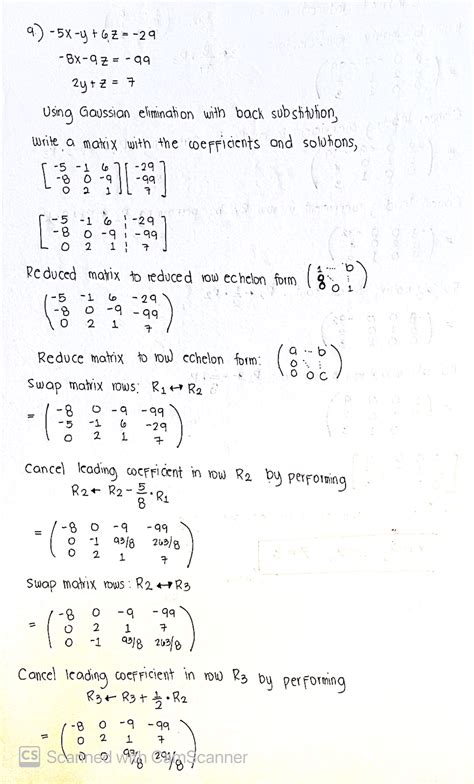 9.) -5x-y+6z=-29
-8x-9z=-99
2y+z=7
Using Gaussian elimination with back substitution,
Write a matrix with the coefficients and solutions,
[-5 -1 6] [-29]
[-8 0 -9] [-99]
[0 2 1] [7]
[-5 -1 6 | -29]
[-8 0 -9 | -99]
[0 2 1 | 7]
Reduced matrix to reduced row echelon form (1 ... b
0
0 0 1)
(-5 -1 6 -29
-8 0 -9 -99
0 2 1 7)
Reduce matrix to row echelon form: (a ... b
0
0 0 c)
Swap matrix rows: R1 ↔ R2
= (-8 0 -9 -99
-5 -1 6 -29
0 2 1 7)
Cancel leading coefficient in row R2 by performing
R2 ← R2 - 5/8 · R1
= (-8 0 -9 -99
0 -1 93/8 263/8
0 2 1 7)
Swap matrix rows: R2 ↔ R3
= (-8 0 -9 -99
0 2 1 7
0 -1 93/8 263/8)
Cancel leading coefficient in row R3 by performing
R3 ← R3 + 1/2 · R2
= (-8 0 -9 -99
0 2 1 7
0 0 97/8 291/8)
CS Scanned with CamScanner